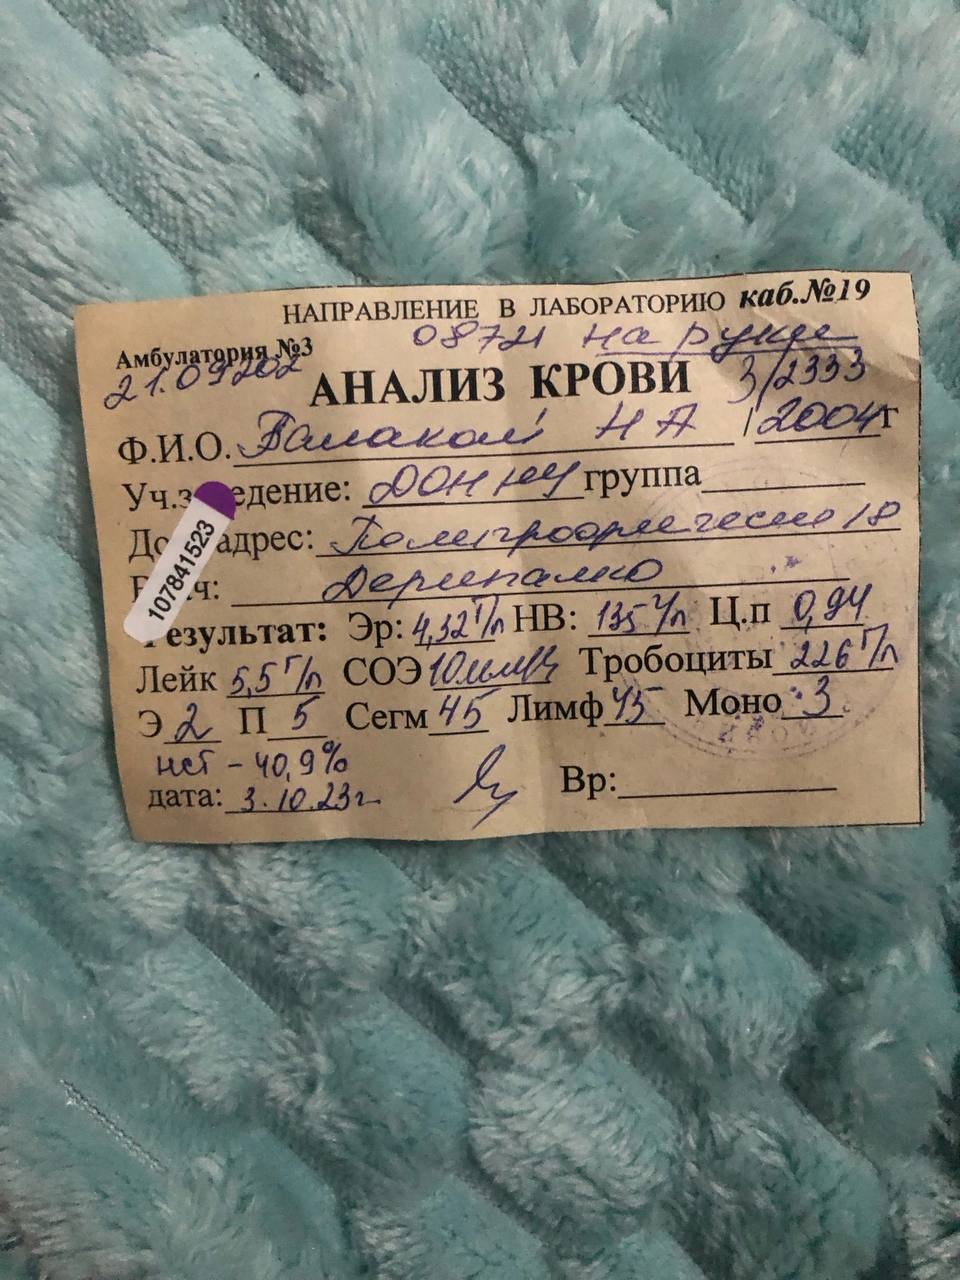 НАПРАВЛЕНИЕ В ЛАБОРАТОРИЮ каб.№19
08721 на руки
Амбулатория №3
21.09.202 3/2333
АНАЛИЗ КРОВИ
Ф.И.О. Н А 2004г
Уч.з едение: ДОННМУ группа
До адрес: 18
ч:
107841523
езультат: Эр: 4,32 Т/л НВ: 135 г/л Ц.п 0,94
Лейк 5,5 Г/л СОЭ 10 мм/ч Тробоциты 226 Г/л
Э 2 П 5 Сегм 45 Лимф 45 Моно 3
нст - 40,9%
дата: 3.10.23г. Вр: